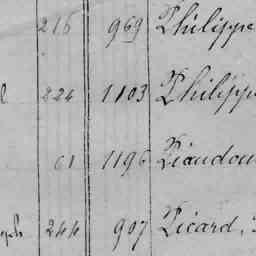 216 969 Philippe
224 1103 Philipp
61 1196 Piaudou
244 907 Picard,